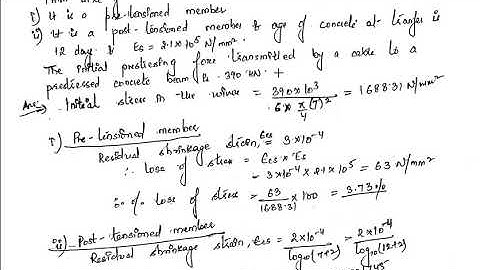 i) It is a pre-tensioned member
ii) It is a post-tensioned member & age of concrete at transfer is
12 day & Es = 2.1×10⁵ N/mm².
The initial prestressing force transmitted by a cable to a
prestressed concrete beam is 390 kN.
Ans:- Initial stress in the wires = 390×10³ / 6×π/4(7)² = 1688.31 N/mm²
i) Pre-tensioned member
Residual shrinkage strain, εcs = 3×10⁻⁴
∴ loss of stress = εcs × Es
= 3×10⁻⁴ × 2.1×10⁵ = 63 N/mm²
∴ % loss of stress = 63/(1688.31) × 100 = 3.73%
ii) Post-tensioned member
Residual shrinkage strain, εcs = 2×10⁻⁴ / log₁₀(T+2) = 2×10⁻⁴ / log₁₀(12+2)